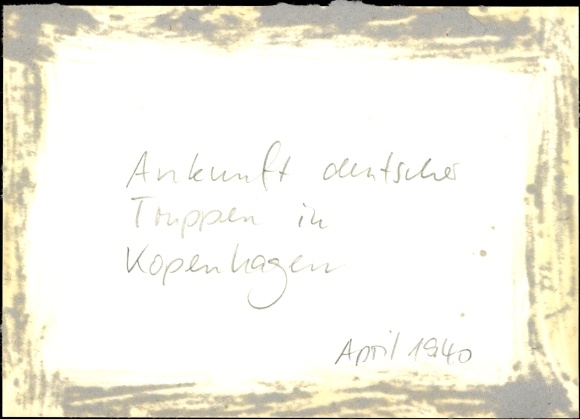 Ankunft deutscher
Truppen in
Kopenhagen
April 1940